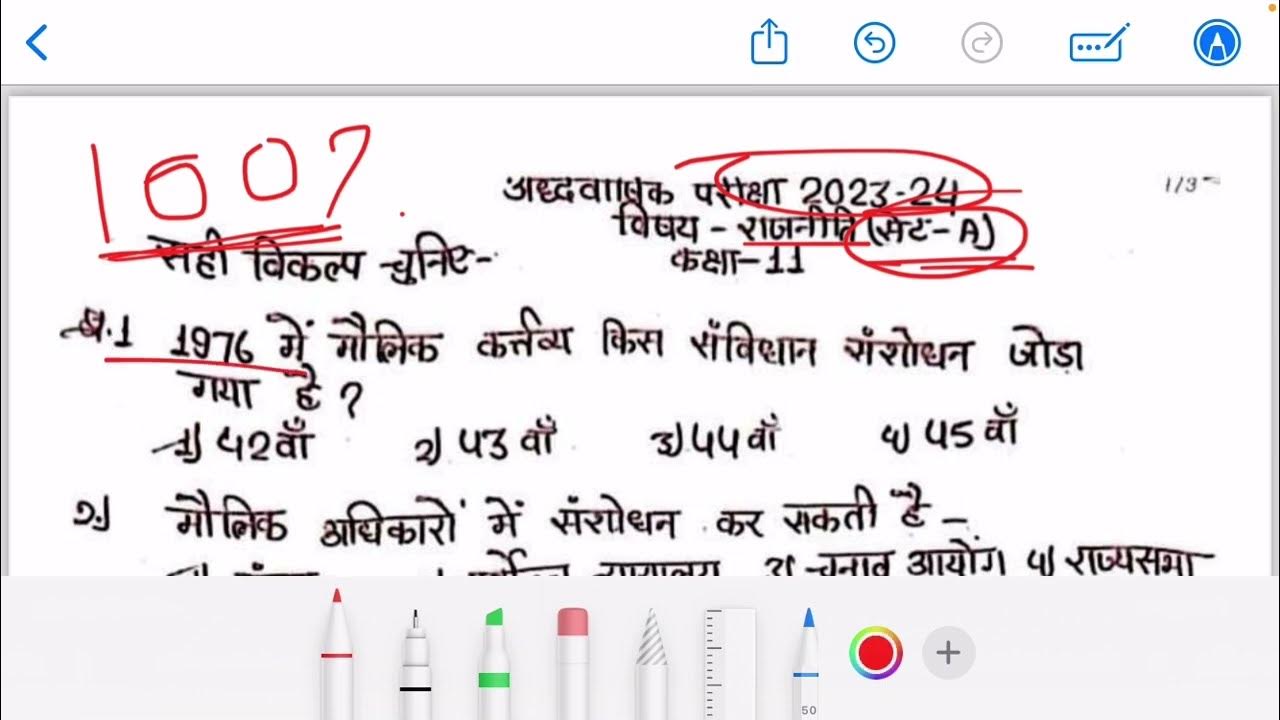 100?
अध्दवार्षिक परीक्षा 2023-24
1/3
विषय - राजनीति (सेट-A)
सही विकल्प चुनिए-
कक्षा-11
प्र.1 1976 में मौलिक कर्त्तव्य किस संविधान संशोधन जोड़ा
गया है ?
1) 42वाँ 2) 43 वाँ 3) 44 वाँ 4) 45 वाँ
2) मौलिक अधिकारों में संशोधन कर सकती है -
न्यायालय 3) चुनाव आयोग 4) राज्यसभा
50